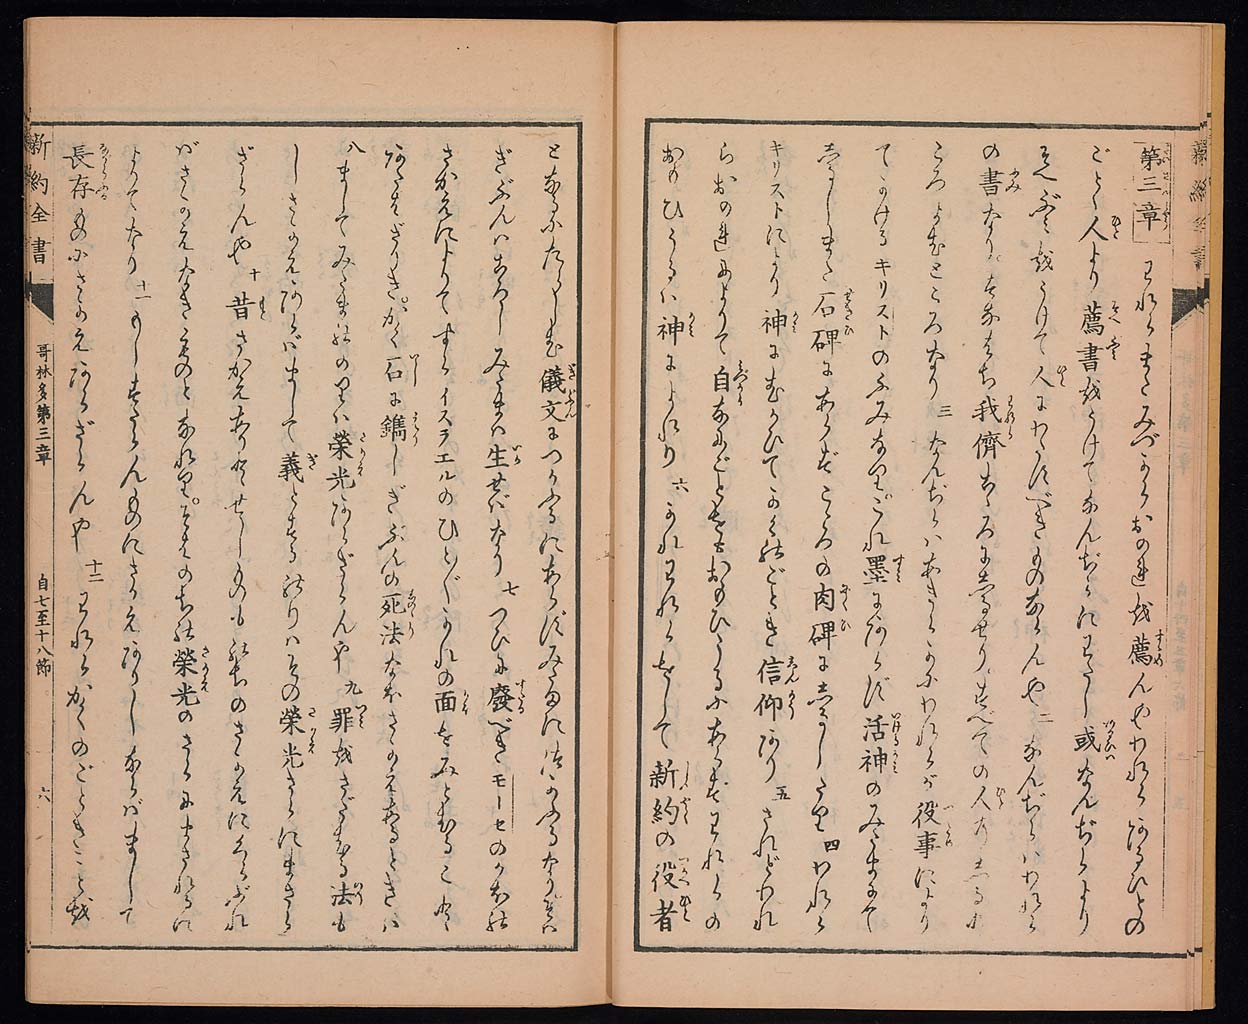 第三章 われらまたみづからおのれを薦んやわれらあるひとの
ごとく人より薦書をうけてなんぢらにわたし或なんぢらより
そへぶみをうけて人にわたすべきものならんや 二 なんぢらはわれら
の書なり。すなはち我儕こころに志るせり。すべての人の志ると
ころよむところなり 三 なんぢらはあきらかにわれらが役事により
てかけるキリストのふみなりこれ墨にあらず活神のみたまにて
志るしまた石碑にあらずこころの肉碑に志るしたり 四 われら
キリストにより神にむかひてかくのごとき信仰あり 五 されどわれ
らおのれによりて自なにごとをもおもひうるにあらずわれらの
おもひうるは神によれり 六 かれわれらをして新約の役者
となるにたらしむ儀文につかふるにあらずみたまにつかふるなりそは
ぎぶんはころしみたまは生せばなり 七 つひに廢べきモーセのかほの
さかえによりてすらイスラエルのひとびとかれの面をみとむること
あたはざりき。かく石に鐫しぎぶんの死法なほさかえあるときは
八 ましてみたまののりは榮光あらざらんや 九 罪をさだむる法も
しさかえあらばまして義とするのりはその榮光さらにまさら
ざらんや 十 昔さかえありとせしものものちのさかえにくらぶれ
ばさかえなきものとなれり。そはのちの榮光のさらにまされるに
よりてなり 十一 もしすたらんものにさかえありしならばまして
長存ものにさかえあらざらんや 十二 われらかくのごときことを
新約全書 哥林多第三章 自七至十八節 六